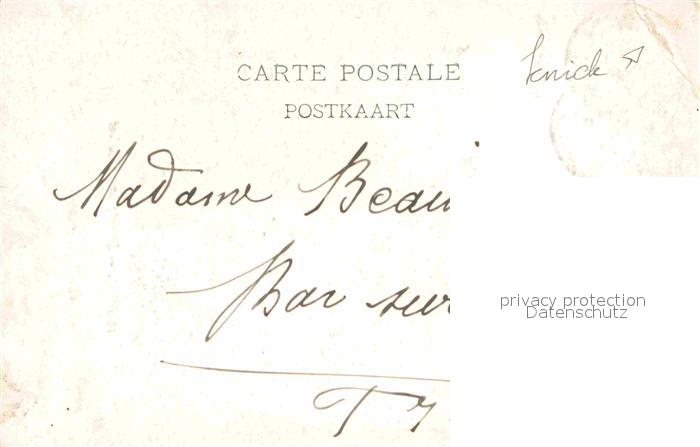 CARTE POSTALE
knick
POSTKAART
Madame Beau
Bar sur
privacy protection
Datenschutz